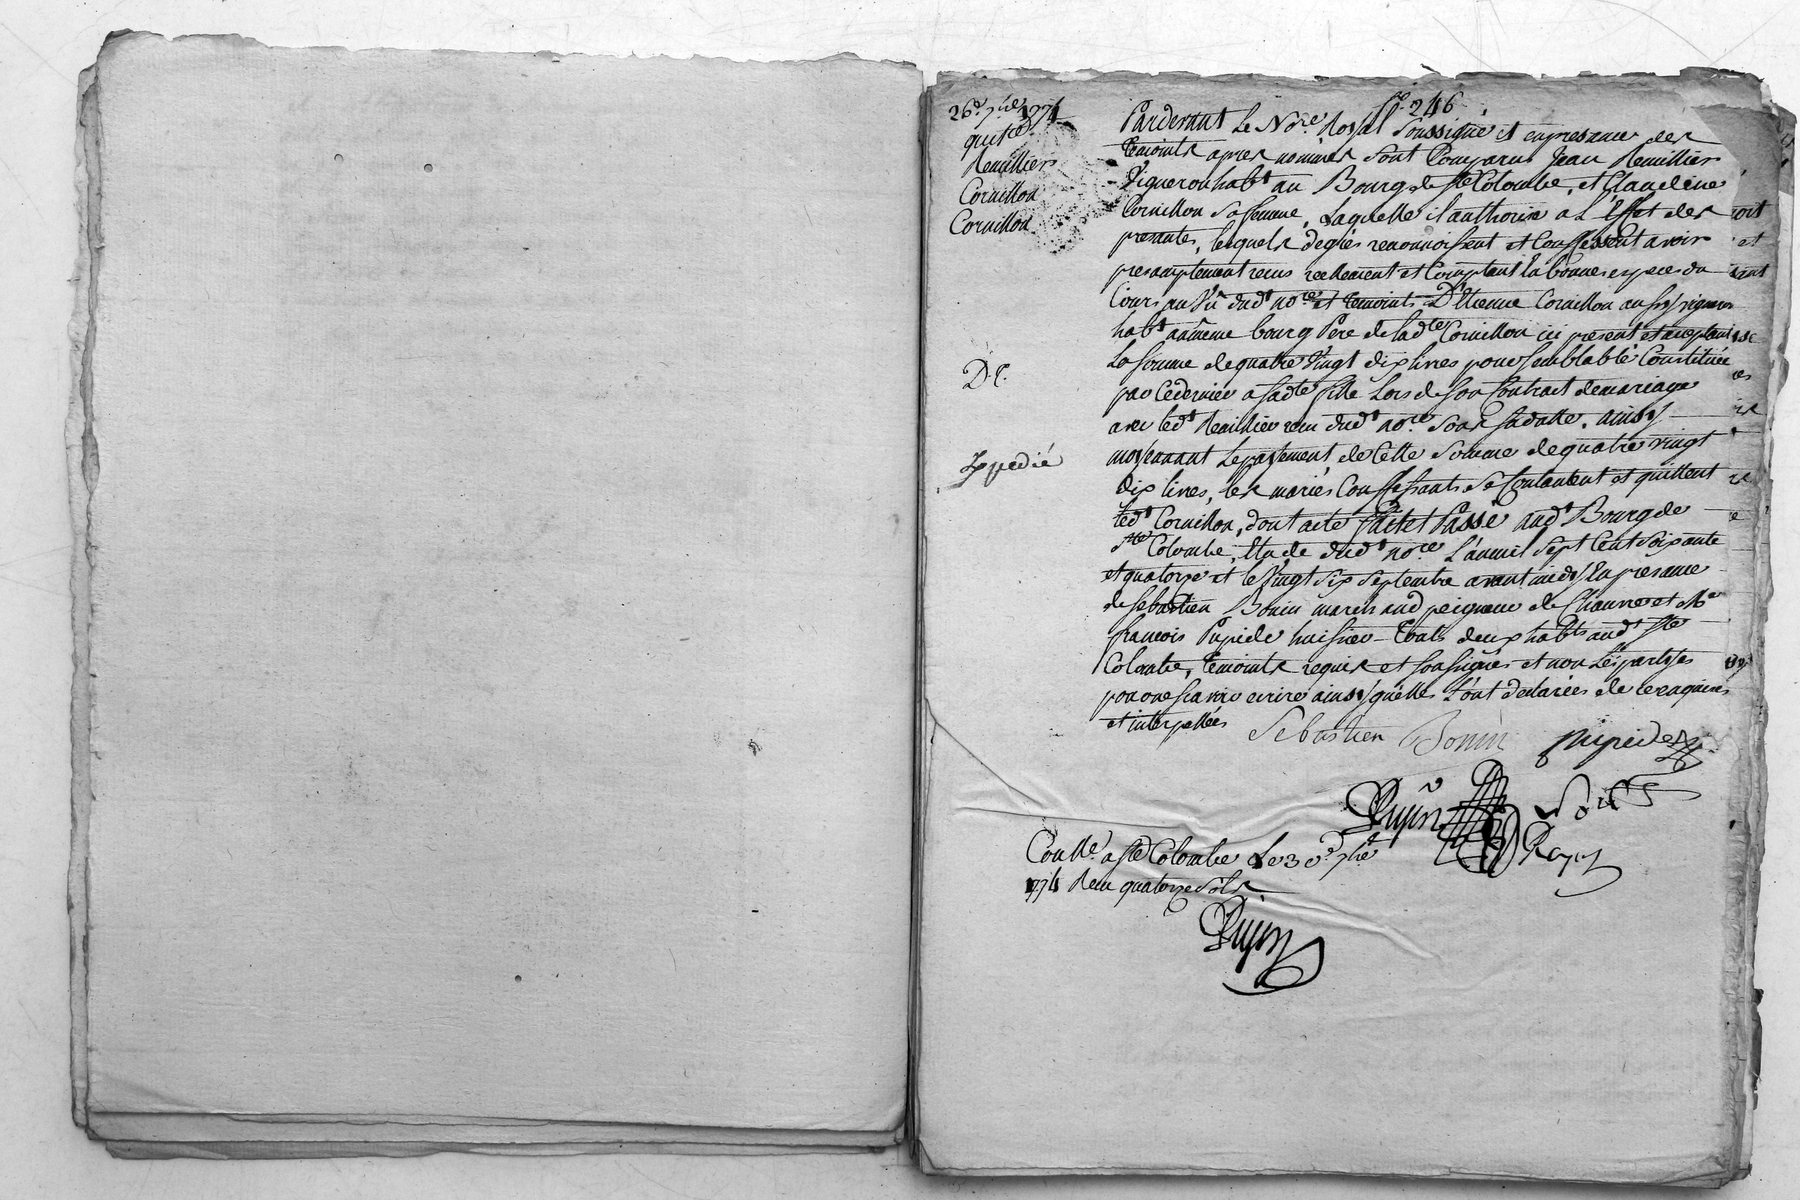 26e 7bre 1774
quitce
Remillier
Cornillon
Cornillon
D. C.
Expedié
fo 246
Pardevant Le Nore Royal Soussigné et en presance des
temoints apres nommes sont Comparus Jean Remillier
Vigneron habt au Bourg de Ste Colombe, et Claudine
Cornillon sa femme, Laquelle il authorise a L'Effet des
presantes, lesquels de grés reconnoissent et Confessent avoir
presamptement recus reellement et Comptant En bonnes especes du
Cours au Vû dudt nore et temoints D'Etienne Cornillon aussy vigneron
habt au même bourg Pere de ladte Cornillon ici present et acceptant
La somme de quatre Vingt dix livres pour semblable Constituée
par Ce dernier a sadte fille Lors de son Contrait de mariage
avec ledt Remillier recu dudt nore sous sa datte. ainsy
moyennant Le payement de Cette Somme de quatre vingt
dix livres, les mariés Confessants se Contantent et quittent
ledt Cornillon, dont acte fait et Passé audt Bourg de
Ste Colombe, Etude dudt nore L'an mil Sept Cent Soixante
et quatorze et le Vingt Six Septembre avant midy En presance
de Sebastien Bonin marchand peigneur de Chanvre et Me
francois Pupide huissier touts deux habts audt Ste
Colombe, temoints requis et soussignés et non Les partyes
pour ne scavoir ecrire ainsy quelles L'ont declarées de ce enquises
et interpellées
Sebastien Bonin pupide
Pujin Nore Royal
Conlle a Ste Colombe Le 30e 7bre
1774 Recu quatorze Sols
Pujin